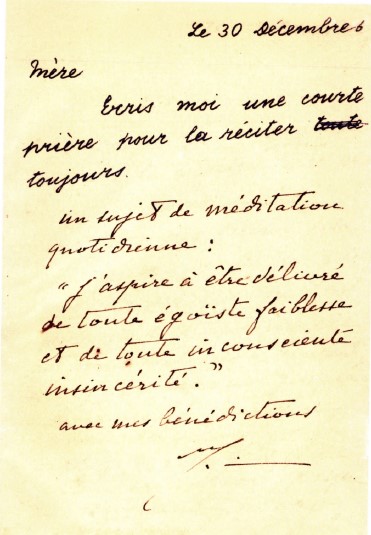 Le 30 Décembre 6
Mère
Ecris moi une courte
prière pour la réciter toute
toujours.
un sujet de méditation
quotidienne :
"J'aspire à être délivré
de toute égoïste faiblesse
et de toute inconsciente
insincérité."
avec mes bénédictions